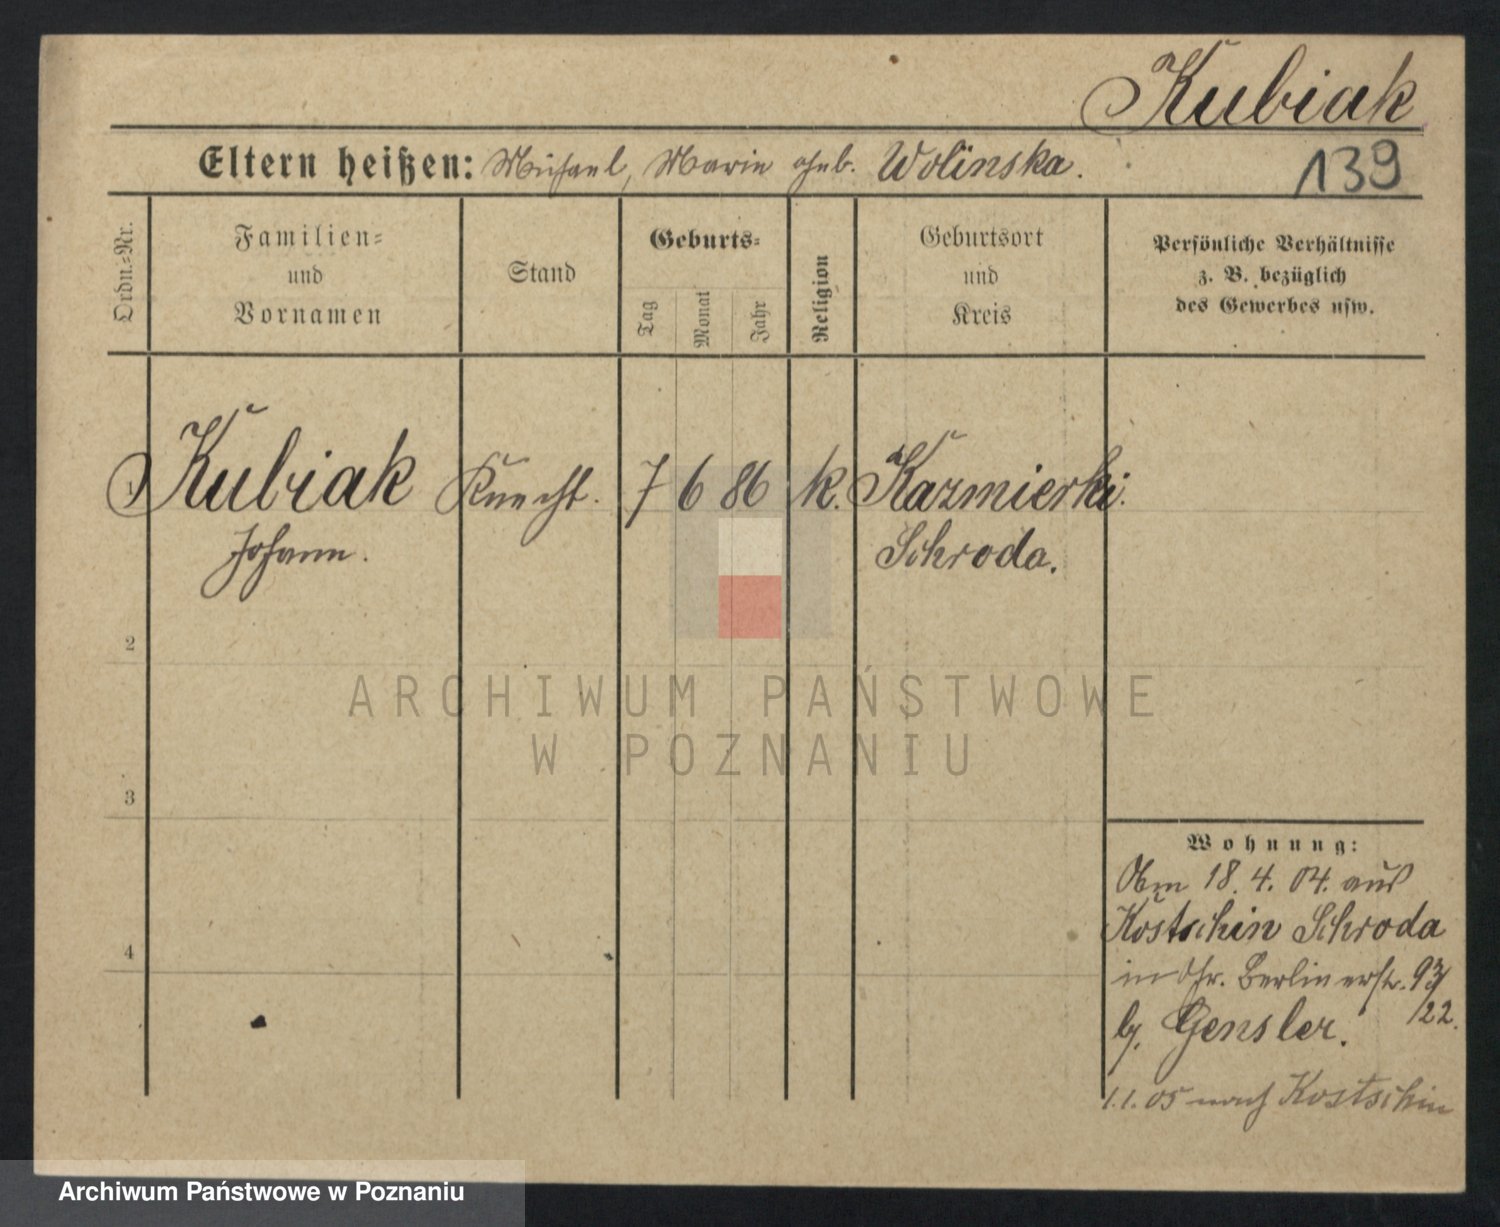 Kubiak
Eltern heißen: Michael, Marie geb. Wolinska.
139
Ordn.-Nr.
Familien-
und
Vornamen
Stand
Geburts-
Tag
Monat
Jahr
Religion
Geburtsort
und
Kreis
Persönliche Verhältnisse
z. B. bezüglich
des Gewerbes usw.
1 Kubiak Knecht. 7 6 86 k. Kazmierki.
Johann. Schroda.
2
3
4
ARCHIWUM PAŃSTWOWE
W POZNANIU
Wohnung:
Am 18. 4. 04. aus
Kostschin Schroda
in Berlinerstr.
b. Gensler.
1.1.05 nach Kostschin
Archiwum Państwowe w Poznaniu